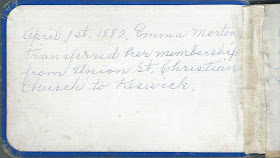 April 1st. 1882, Emma Morton
transferred her membership
from Union St. Christian
Church to Keswick.